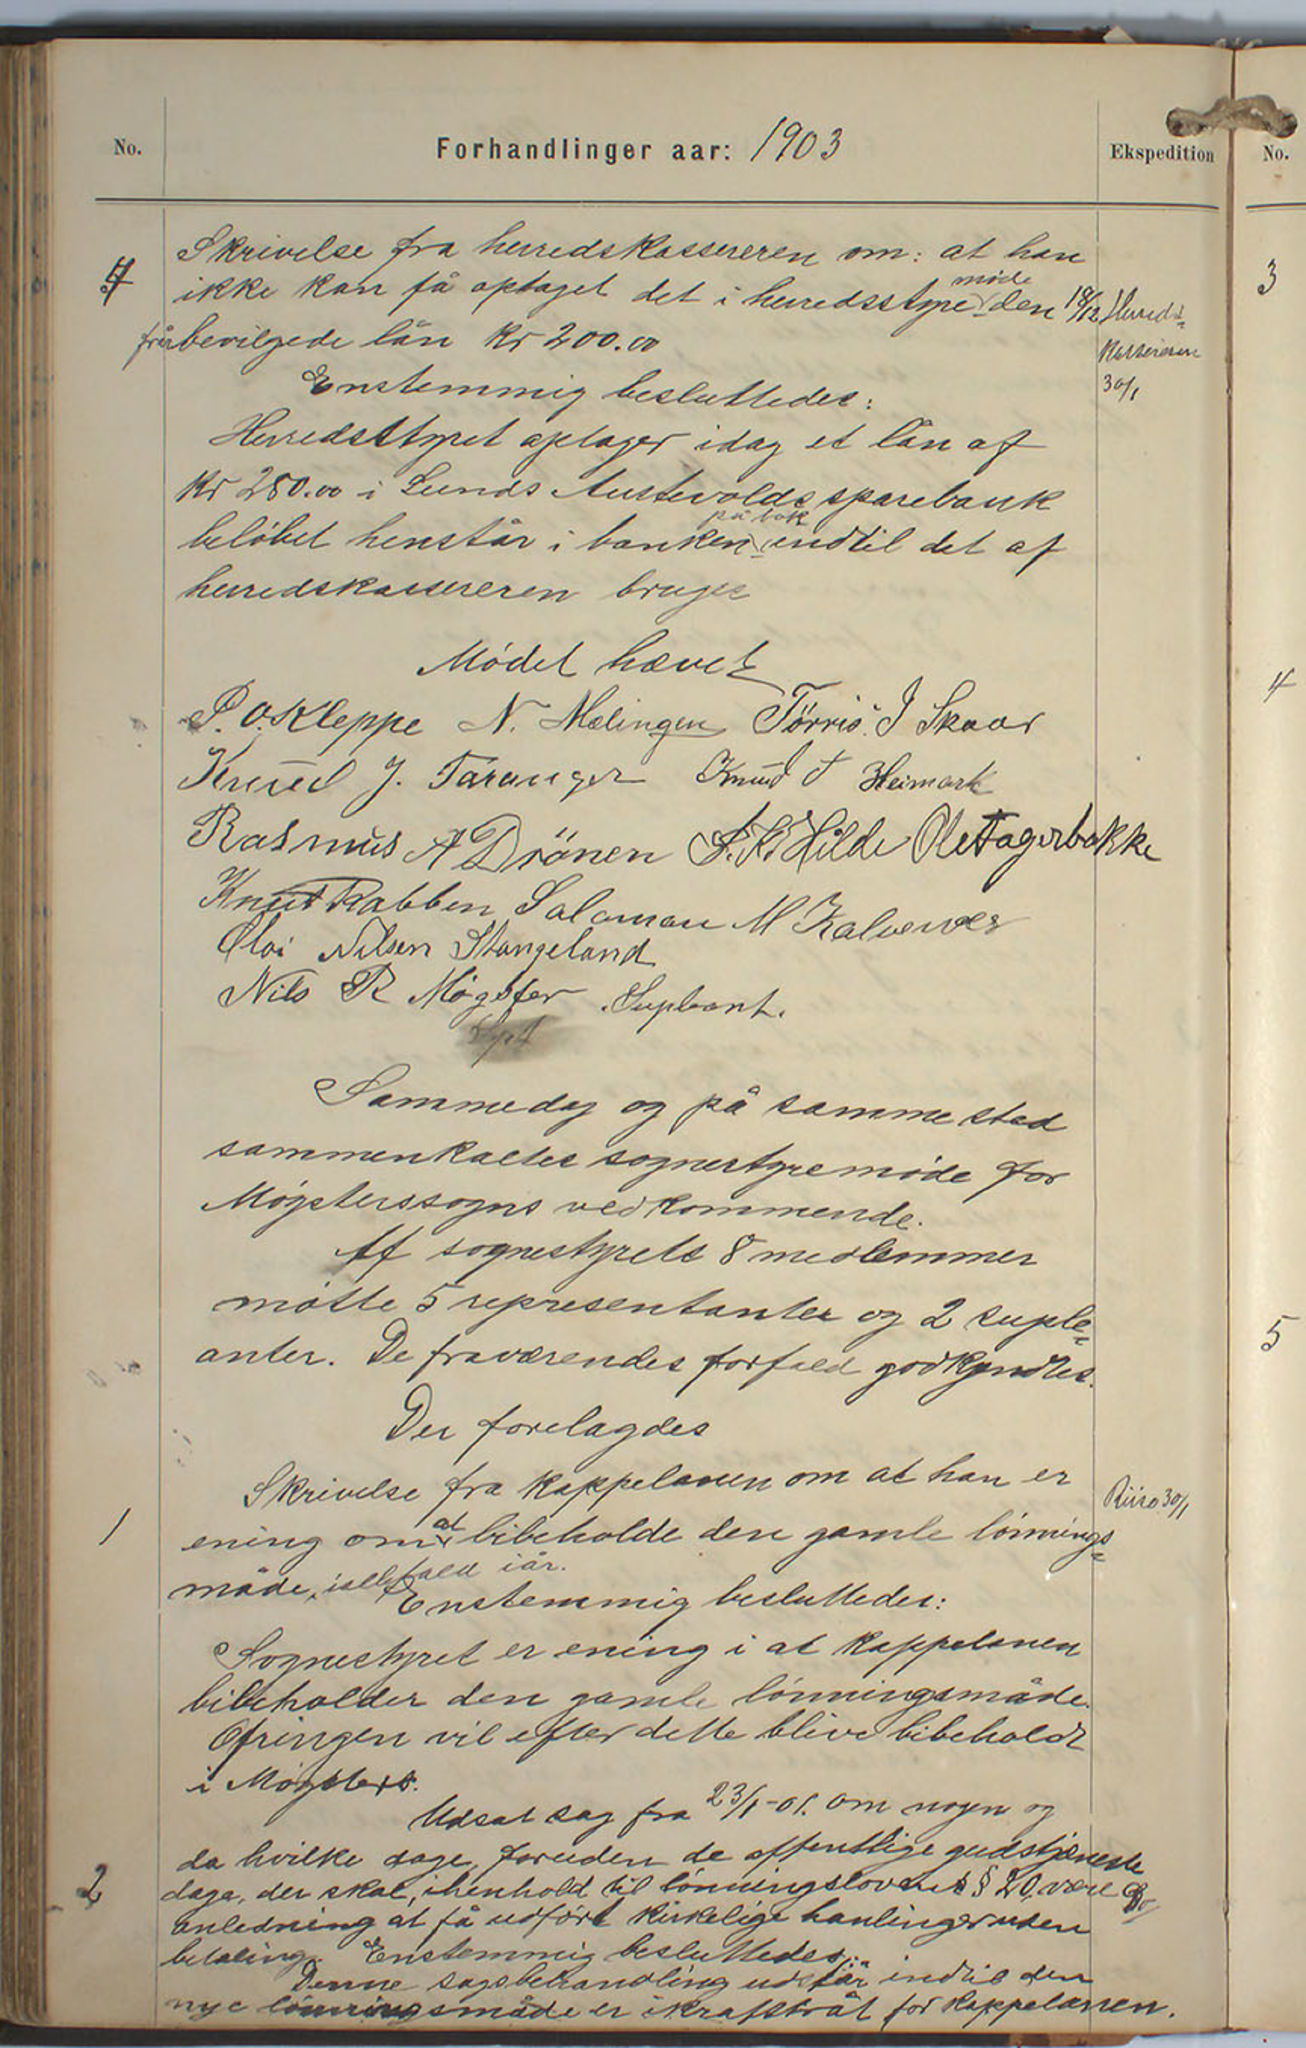 No. Forhandlinger aar: 1903 Ekspedition No.
Skrivelse fra herredskassereren om: at han
ikke kan få optaget det i herredsstyre møde den 18/12
bevilgede lån Kr 200.00
Herreds-
kassereren
30/1
Enstemmig besluttedes:
Herredsstyret optager idag et lån af
Kr 250.00 i Sunds Austevolds sparebank
beløbet henstår i banken på bok indtil det af
herredskassereren bruges
Mødet hævet
P. O. Kleppe N. Mælingen Tørris J Skaar
Knud J. Taranger Knud J Heimark
Rasmus A Drönen S. K. Hilde Ole Fagerbakke
Knut Rabben Salamon M Kalvenes
Oloi Nilsen Stangeland
Nils R Møgster Supleant.
Sammedag og på samme sted
sammenkaltes sognestyremøde for
Møgsterssogns vedkommende.
Af sognestyrets 8 medlemmer
møtte 5 representanter og 2 suple-
anter. De fraværendes forfald godkjendtes.
Der forelagdes
1
Skrivelse fra kappelanen om at han er
Riiso 30/1
ening om at bibeholde den gamle lønnings-
måde, iallefald iår.
Enstemmig besluttedes:
Sognestyret er ening i at kappelanen
bibeholder den gamle lønningsmåde.
Ofringen vil efter dette blive bibeholdt
i Møgster.
Udsat sag fra 23/1-01. om nogen og
2
da hvilke dage, foruden de offentlige gudstjeneste
dage, der skal, ihenhold til lønningsloven § 20, være
Do
anledning at få udført kirkelige hanlinger uden
betaling. Enstemmig besluttedes:
Denne sagsbehandling udstår indtil den
nye lønningsmåde er ikrafttråt for kappelanen.
3
4
5